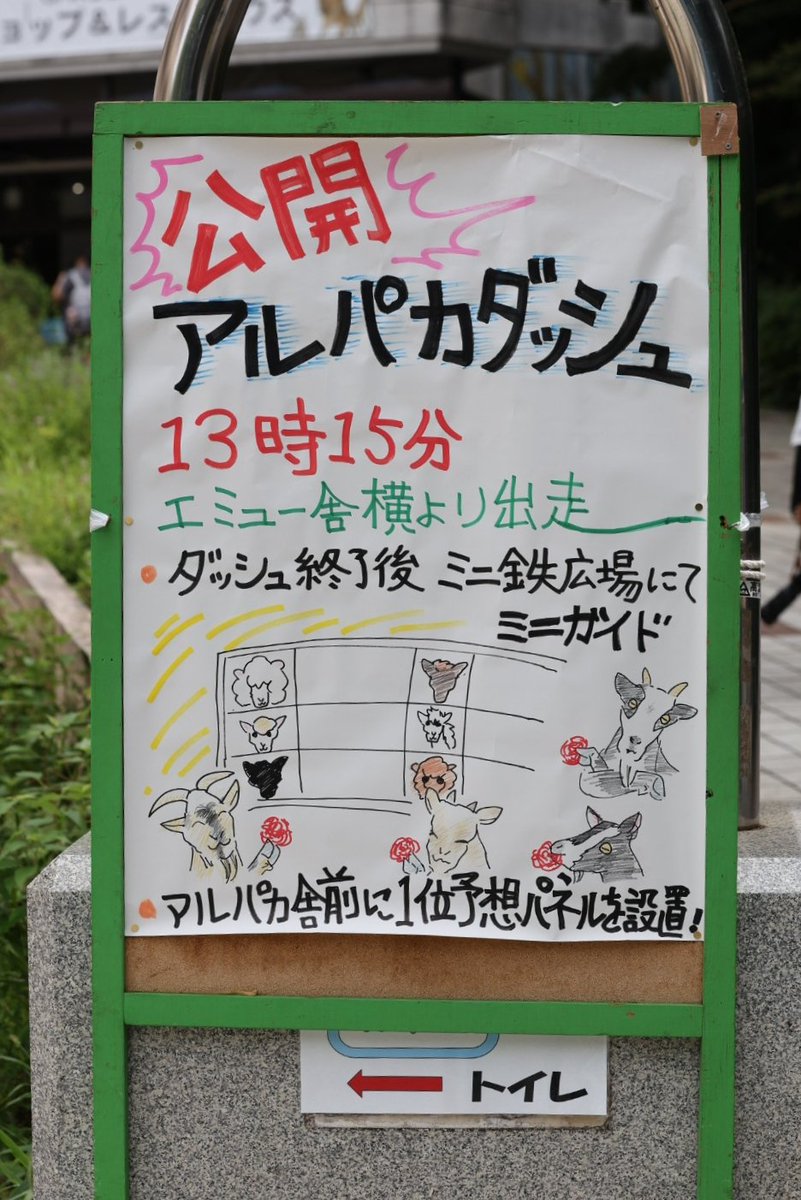 ョップ&レス
公開
アルパカダッシュ
13時15分
エミュー舎横より出走
・ダッシュ終了後 ミニ鉄広場にて
ミニガイド
・アルパカ舎前に1位予想パネルを設置!
← トイレ